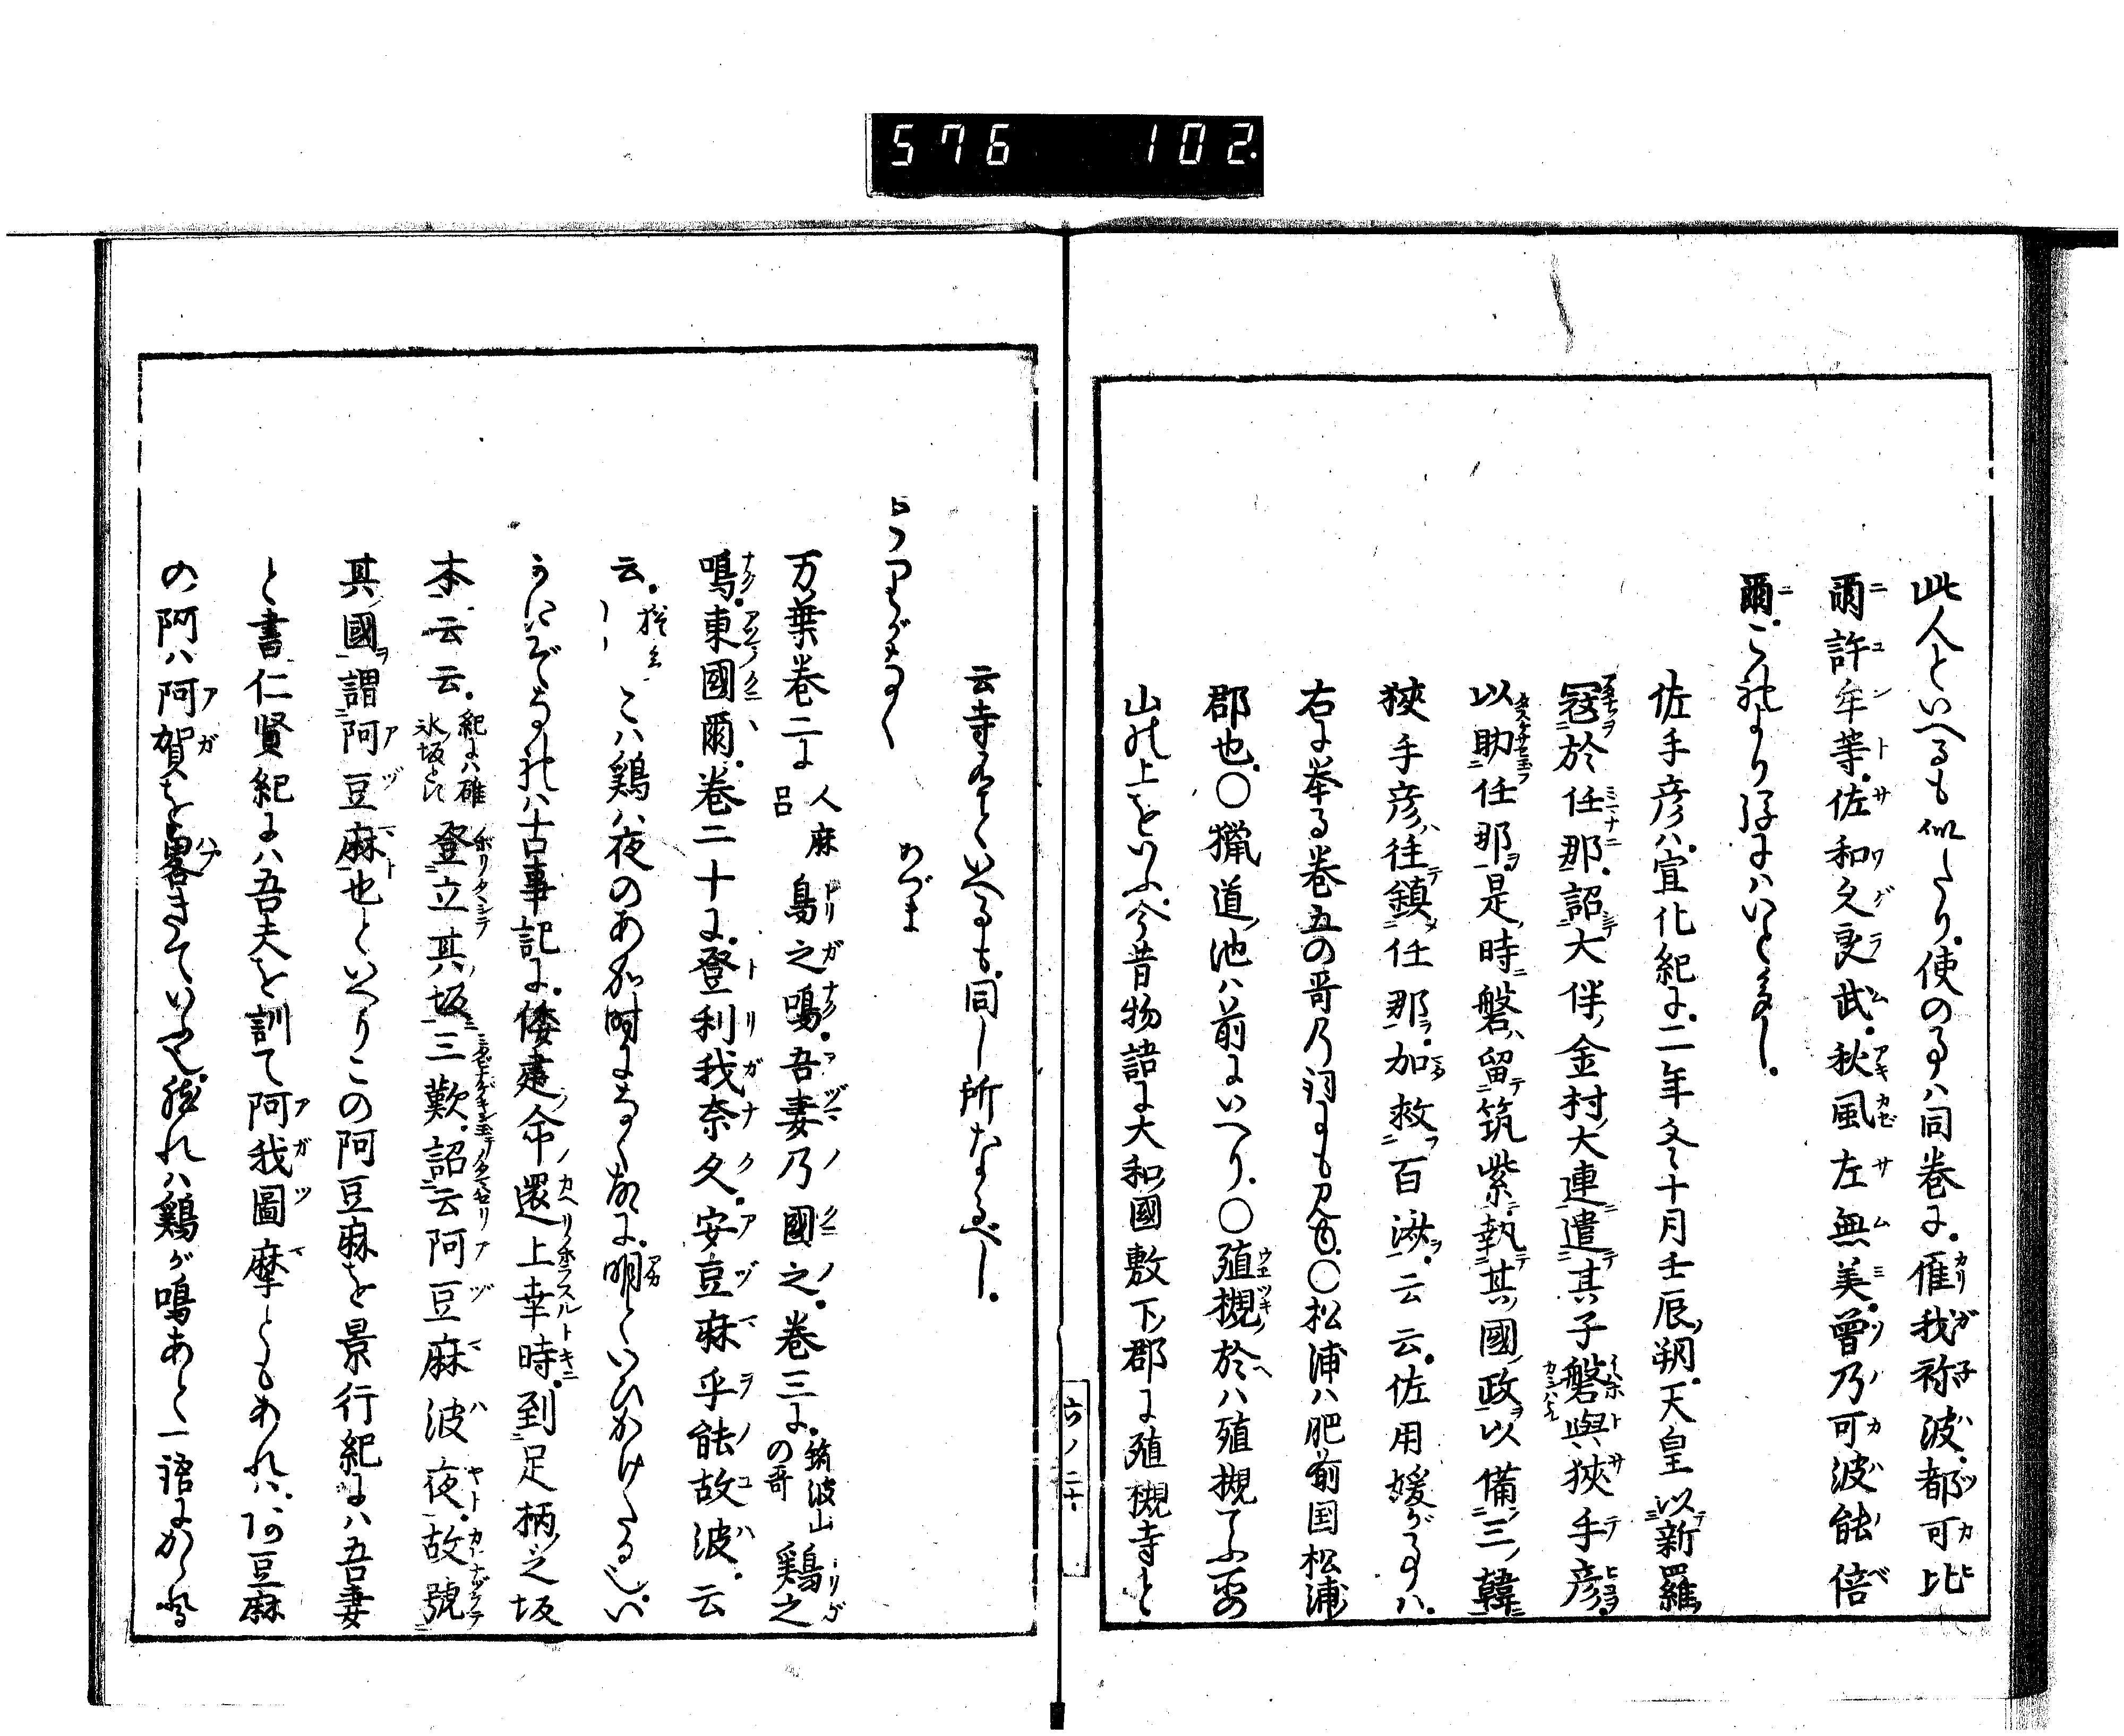 576 102.
此人といへるも似たり使の事ハ同巻に雁我祢波都可比
爾許牟等佐和久良武秋風左無美曽乃可波能倍
爾これより後にハいと多し
佐手彦ハ宣化紀に二年冬十月壬辰朔天皇以新羅
寇於任那詔大伴金村大連遣其子磐與狭手彦
以助任那是時磐留筑紫執其國政以備三韓
狭手彦往鎮任那加救百済云云佐用媛が事ハ
右に挙る巻五の哥乃詞にも見ゆ〇松浦ハ肥前国松浦
郡也〇獵道池ハ前にいへり〇殖槻於ハ殖槻てふ
山の上をいふ今昔物語に大和國敷下郡に殖槻寺と
六ノ二十
云寺有といへるも同し所なるべし
とりがなく あづま
万葉巻二に人麻呂鳥之鳴吾妻乃國之巻三に筑波山の哥鶏之
鳴東國爾巻二十に登利我奈久安豆麻乎能故波云
云 こハ鶏ハ夜のあか時になく故に明といひかけたる也
うにぞなれハ古事記に倭建命還上幸時到足柄之坂
本云云紀にハ碓氷坂とい登立其坂三歎詔云阿豆麻波夜故號
其國謂阿豆麻也といへりこの阿豆麻を景行紀にハ吾妻
と書仁賢紀にハ吾夫を訓て阿我圖摩ともあれハ阿豆麻
の阿ハ阿賀を畧きていへる也然れハ鶏が鳴あと一語にかゝれる